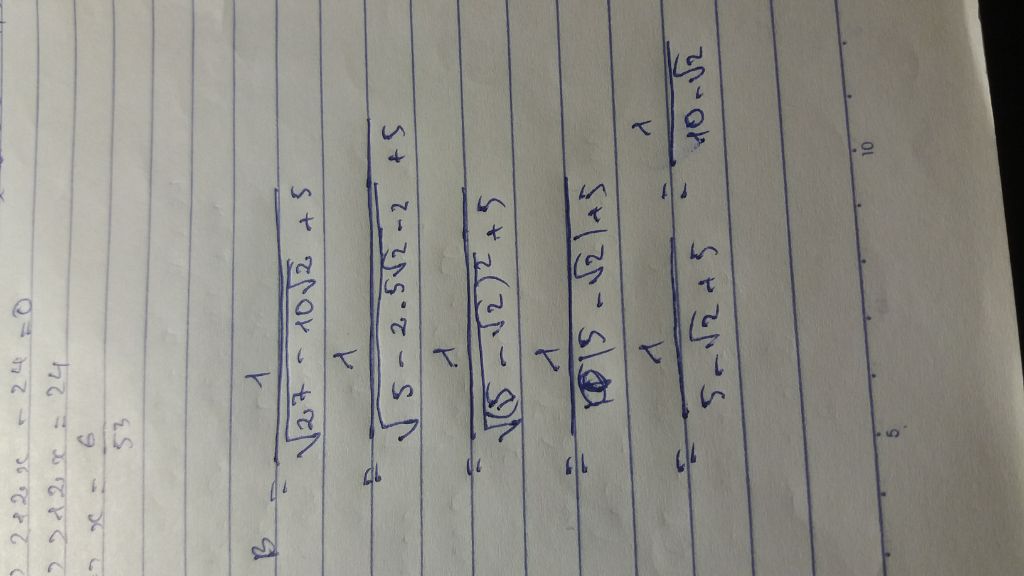 2+2x-24=0
2+2x=24
x=6
53
B = 1/(√(27 - 10√2) + 5)
= 1/(√(5 - 2.5√2 - 2) + 5)
= 1/(√((5 - √2)²) + 5)
= 1/(|5 - √2| + 5)
= 1/(5 - √2 + 5) = 1/(10 - √2)
5 10